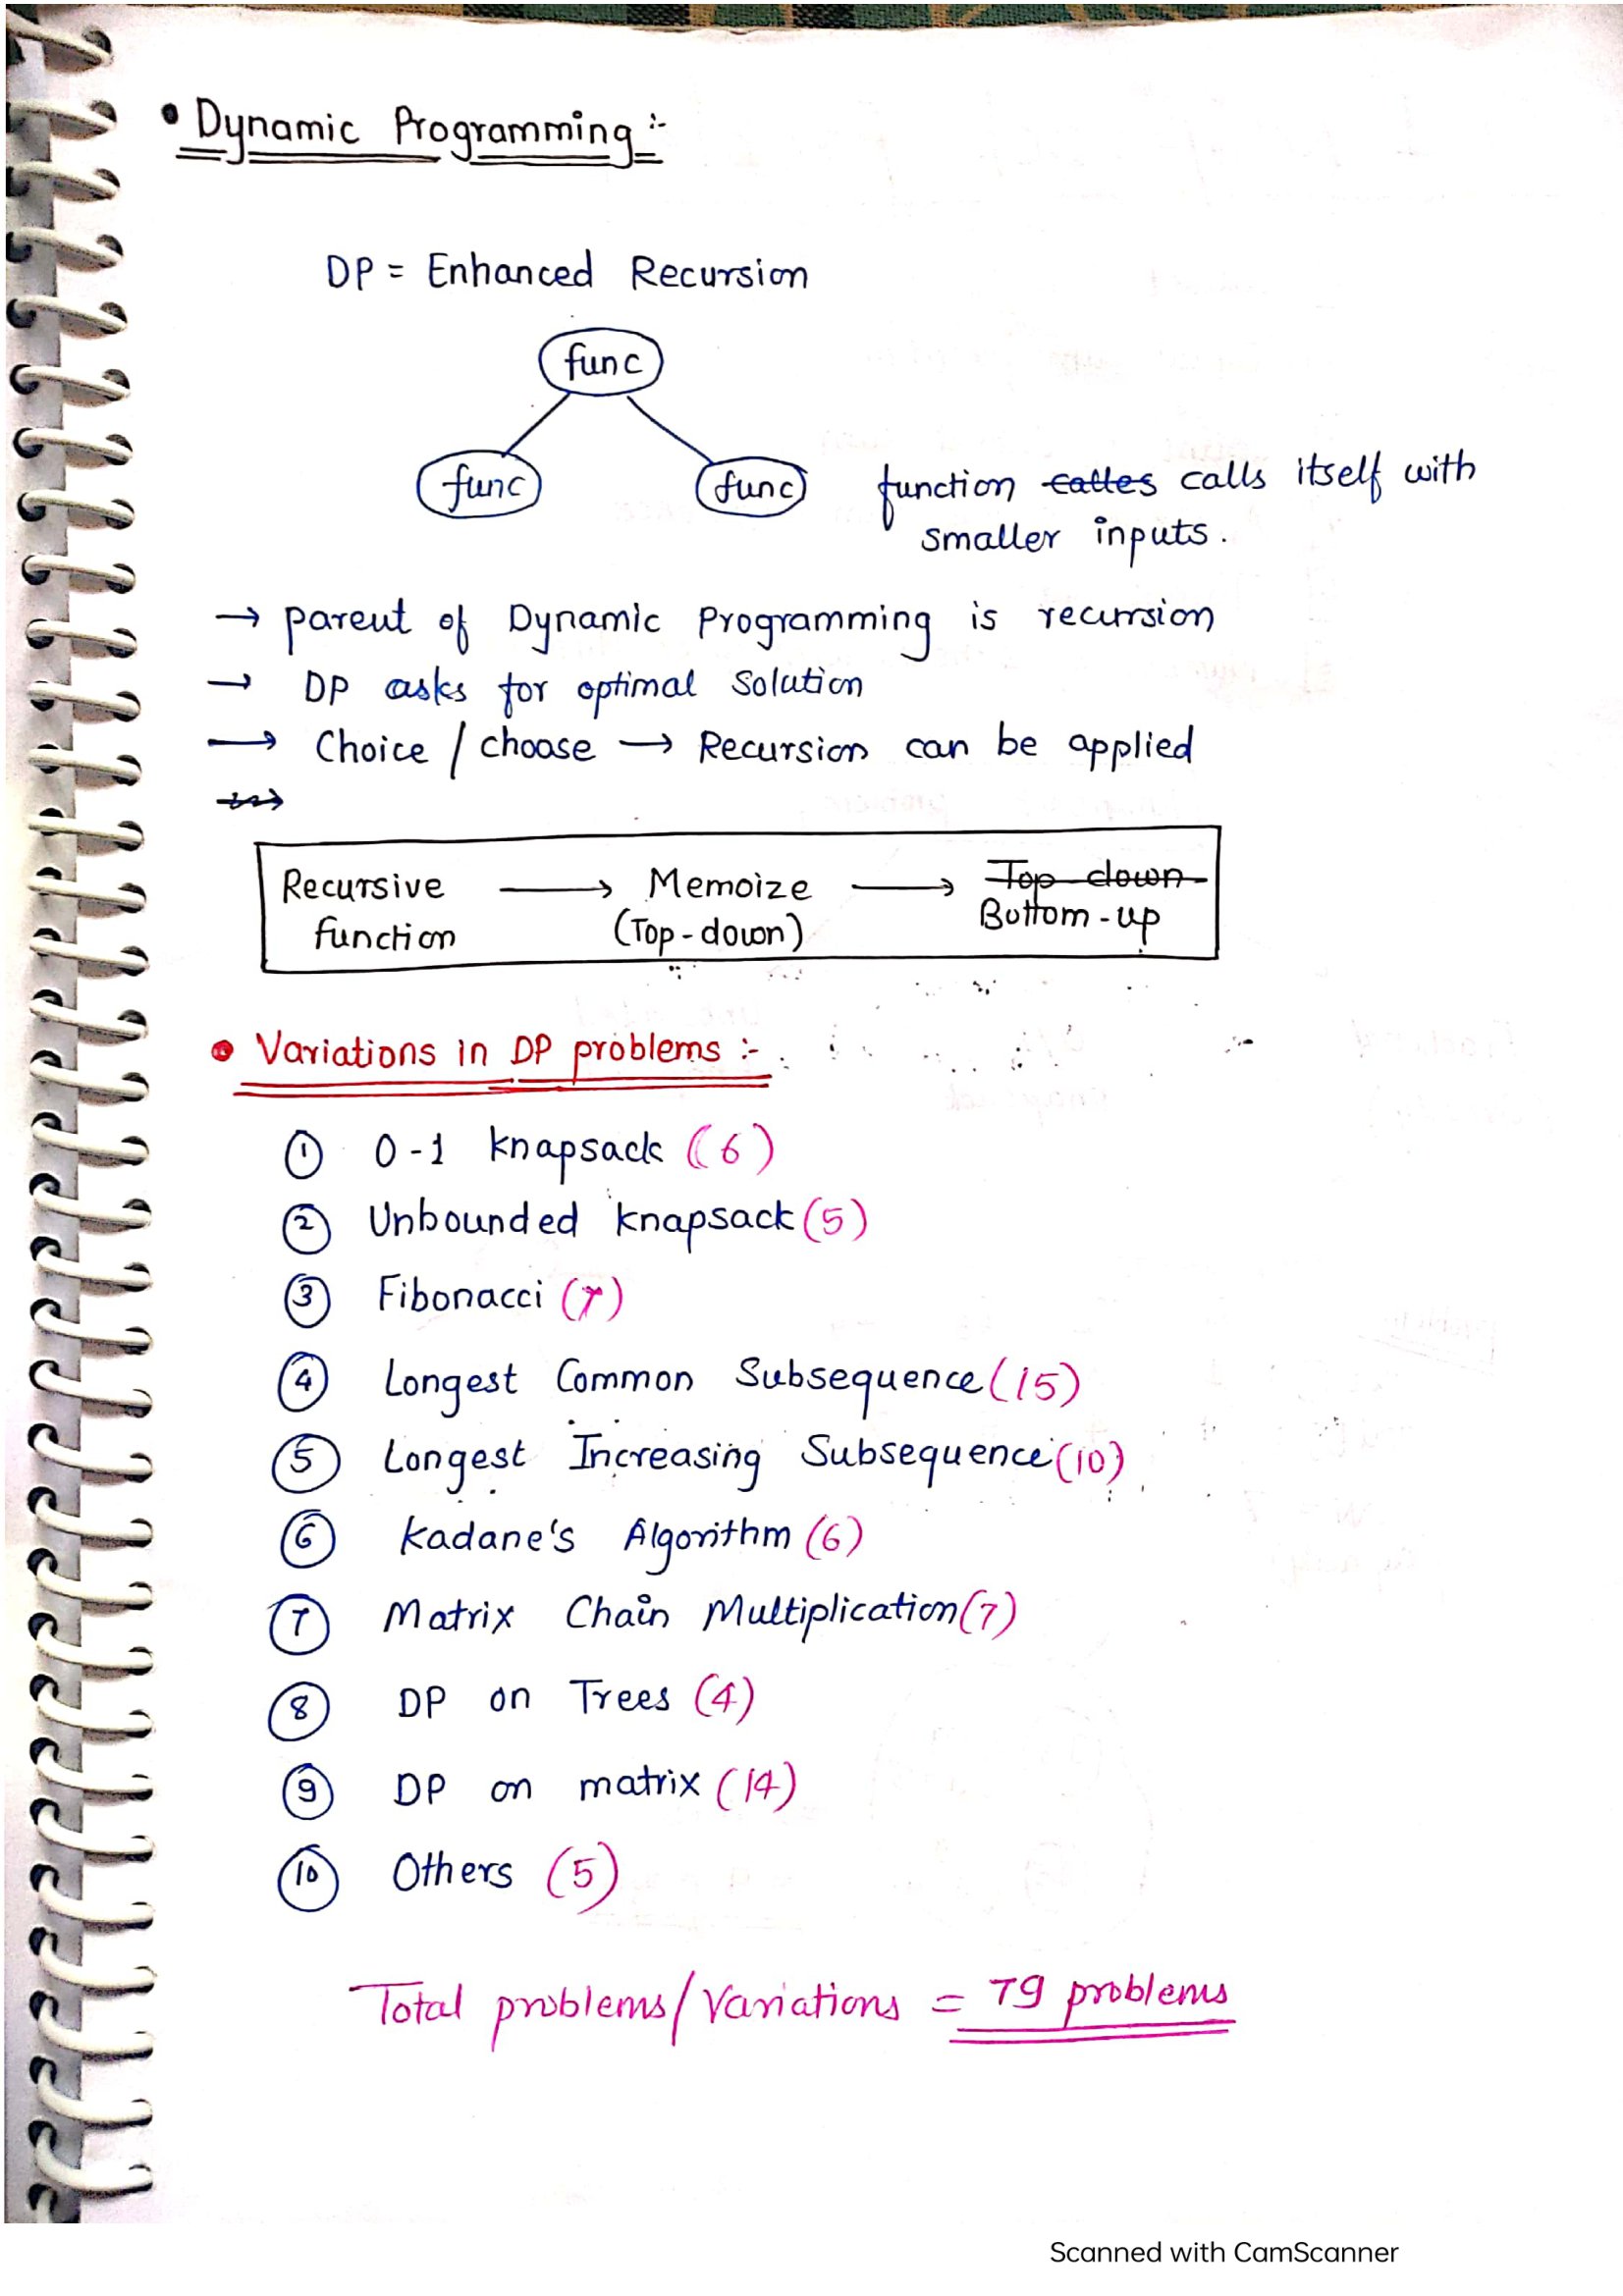 • Dynamic Programming :-
DP = Enhanced Recursion
func
func func function calles calls itself with
smaller inputs.
→ parent of Dynamic Programming is recursion
→ DP asks for optimal Solution
→ Choice / choose → Recursion can be applied
Recursive → Memoize → Top-down
function (Top-down) Bottom-up
• Variations in DP problems :-
① 0-1 knapsack (6)
② Unbounded knapsack (5)
③ Fibonacci (7)
④ Longest Common Subsequence (15)
⑤ Longest Increasing Subsequence (10)
⑥ Kadane's Algorithm (6)
⑦ Matrix Chain Multiplication (7)
⑧ DP on Trees (4)
⑨ DP on matrix (14)
⑩ Others (5)
Total problems/Variations = 79 problems
Scanned with CamScanner